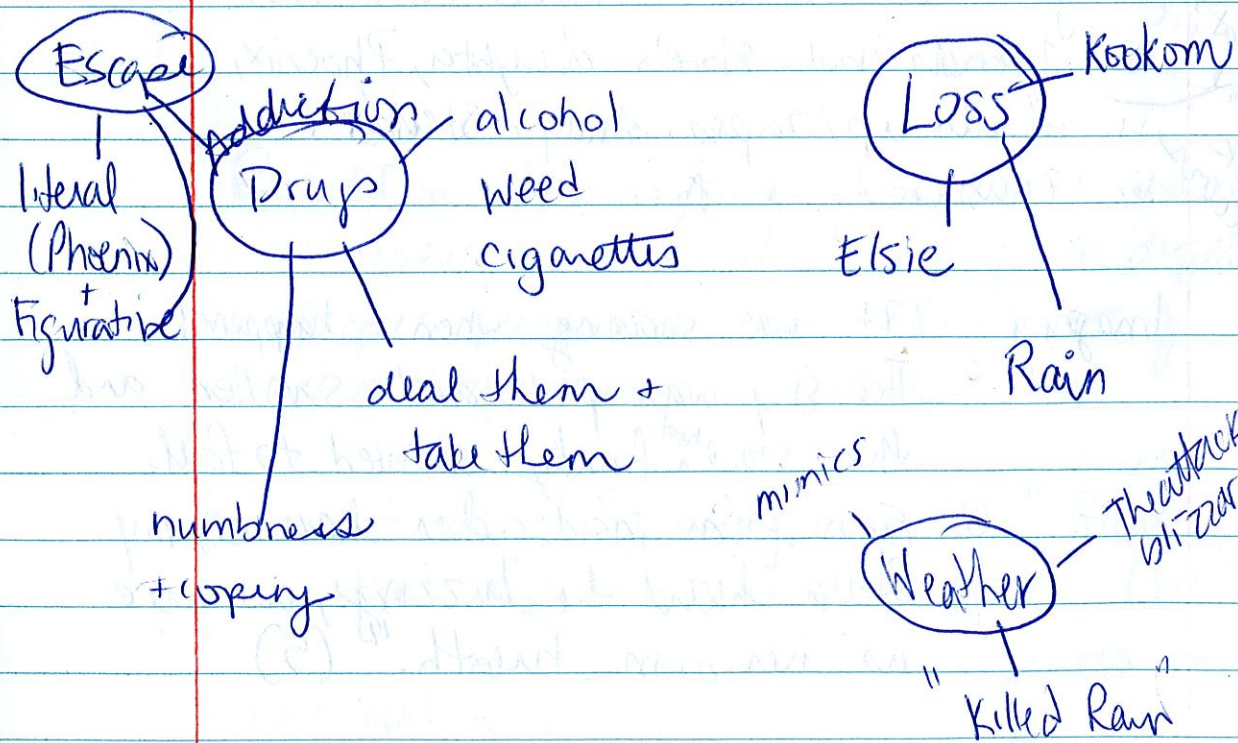 Escape
literal
(Phoenix)
+
Figurative
Addiction
Drugs
alcohol
weed
cigarettes
deal them +
take them
numbness
+ coping
Loss
Kookom
Elsie
Rain
mimics
Weather
The attack
blizzar
"Killed Rain"